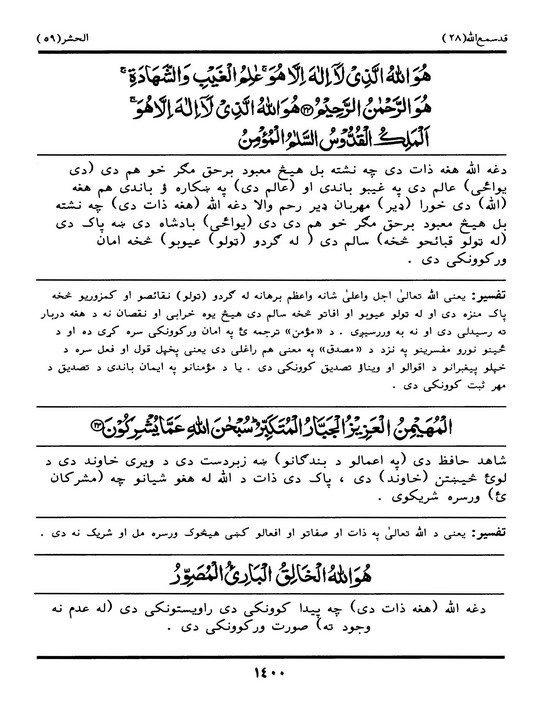 قدسمع الله (۲۸)
الحشر (۵۹)
هُوَ اللّٰهُ الَّذِیْ لَاۤ اِلٰهَ اِلَّا هُوَ ۚ عٰلِمُ الْغَیْبِ وَالشَّهَادَةِ ۚ
هُوَ الرَّحْمٰنُ الرَّحِیْمُ ﴿۲۲﴾ هُوَ اللّٰهُ الَّذِیْ لَاۤ اِلٰهَ اِلَّا هُوَ ۚ
اَلْمَلِكُ الْقُدُّوْسُ السَّلٰمُ الْمُؤْمِنُ
دغه الله هغه ذات دی چه نشته بل هیڅ معبود برحق مگر خو هم دی (دی
یواځی) عالم دی په غیبو باندی او (عالم دی) په ښکاره ؤ باندی هم هغه
(الله) دی خورا (ډیر) مهربان ډیر رحم والا دغه الله (هغه ذات دی) چه نشته
بل هیڅ معبود برحق مگر خو هم دی دی (یواځی) بادشاه دی ښه پاک دی
(له ټولو قبائحو څخه) سالم دی ( له گردو (ټولو) عیوبو) څخه امان
ورکوونکی دی .
تفسیر: یعنی الله تعالیٰ اجل واعلیٰ شانه واعظم برهانه له گردو (ټولو) نقائصو او کمزوریو څخه
پاک منزه دی او له ټولو عیوبو او افاتو څخه سالم دی هیڅ یوه خرابی او نقصان نه د هغه دربار
ته رسیدلی دی او نه به وررسیږی . د «مؤمن» ترجمه ئ په امان ورکوونکی سره کړی ده او د
ځینو نورو مفسرینو په نزد د «مصدق» په معنی هم راغلی دی یعنی پخپل قول او فعل سره د
خپلو پیغبرانو د اقوالو او ویناؤ تصدیق کوونکی دی . یا د مؤمنانو په ایمان باندی د تصدیق د
مهر ثبت کوونکی دی .
الْمُهَیْمِنُ الْعَزِیْزُ الْجَبَّارُ الْمُتَكَبِّرُ ؕ سُبْحٰنَ اللّٰهِ عَمَّا یُشْرِكُوْنَ ﴿۲۳﴾
شاهد حافظ دی (په اعمالو د بندگانو) ښه زبردست دی د ویری خاوند دی د
لوئ څیښتن (خاوند) دی ، پاک دی ذات د الله له هغو شیانو چه (مشرکان
ئ) ورسره شریکوی .
تفسیر: یعنی د الله تعالیٰ په ذات او صفاتو او افعالو کښی هیڅوک ورسره مل او شریک نه دی .
هُوَ اللّٰهُ الْخَالِقُ الْبَارِئُ الْمُصَوِّرُ
دغه الله (هغه ذات دی) چه پیدا کوونکی دی راویستونکی دی (له عدم نه
وجود ته) صورت ورکوونکی دی .
۱٤۰۰